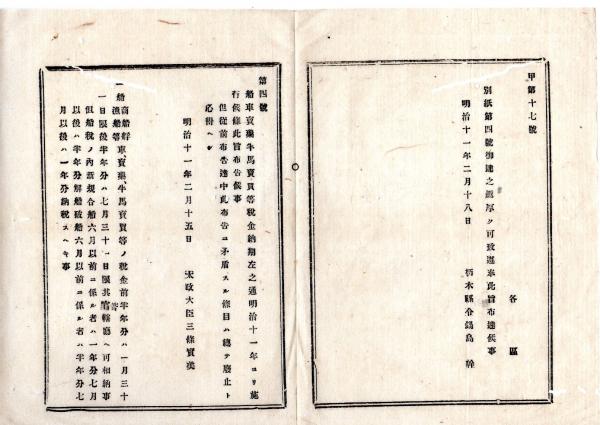 甲第十七號
各區
別紙第四號御達之趣厚ク可致遵奉此旨布達候事
明治十一年二月十八日　栃木縣令鍋島幹
第四號
船車賣藥牛馬賣買等税金納期左之通明治十一年ヨリ施
行候條此旨布告候事
但從前布告達中此布告ニ矛盾スル條目ハ總テ廢止ト
可心得ヘシ
明治十一年二月十五日　太政大臣三條實美
一商船艀漁船等車賣藥牛馬賣買等ノ税金前半年分ハ一月三十
一日限後半年分ハ七月三十一日限其管轄廳ヘ可相納事
但船税ノ內新規合船六月以前ニ係ル者ハ一年分七月
以後ハ半年分解船破船六月以前ニ係ル者ハ半年分七
月以後ハ一年分納税スヘキ事